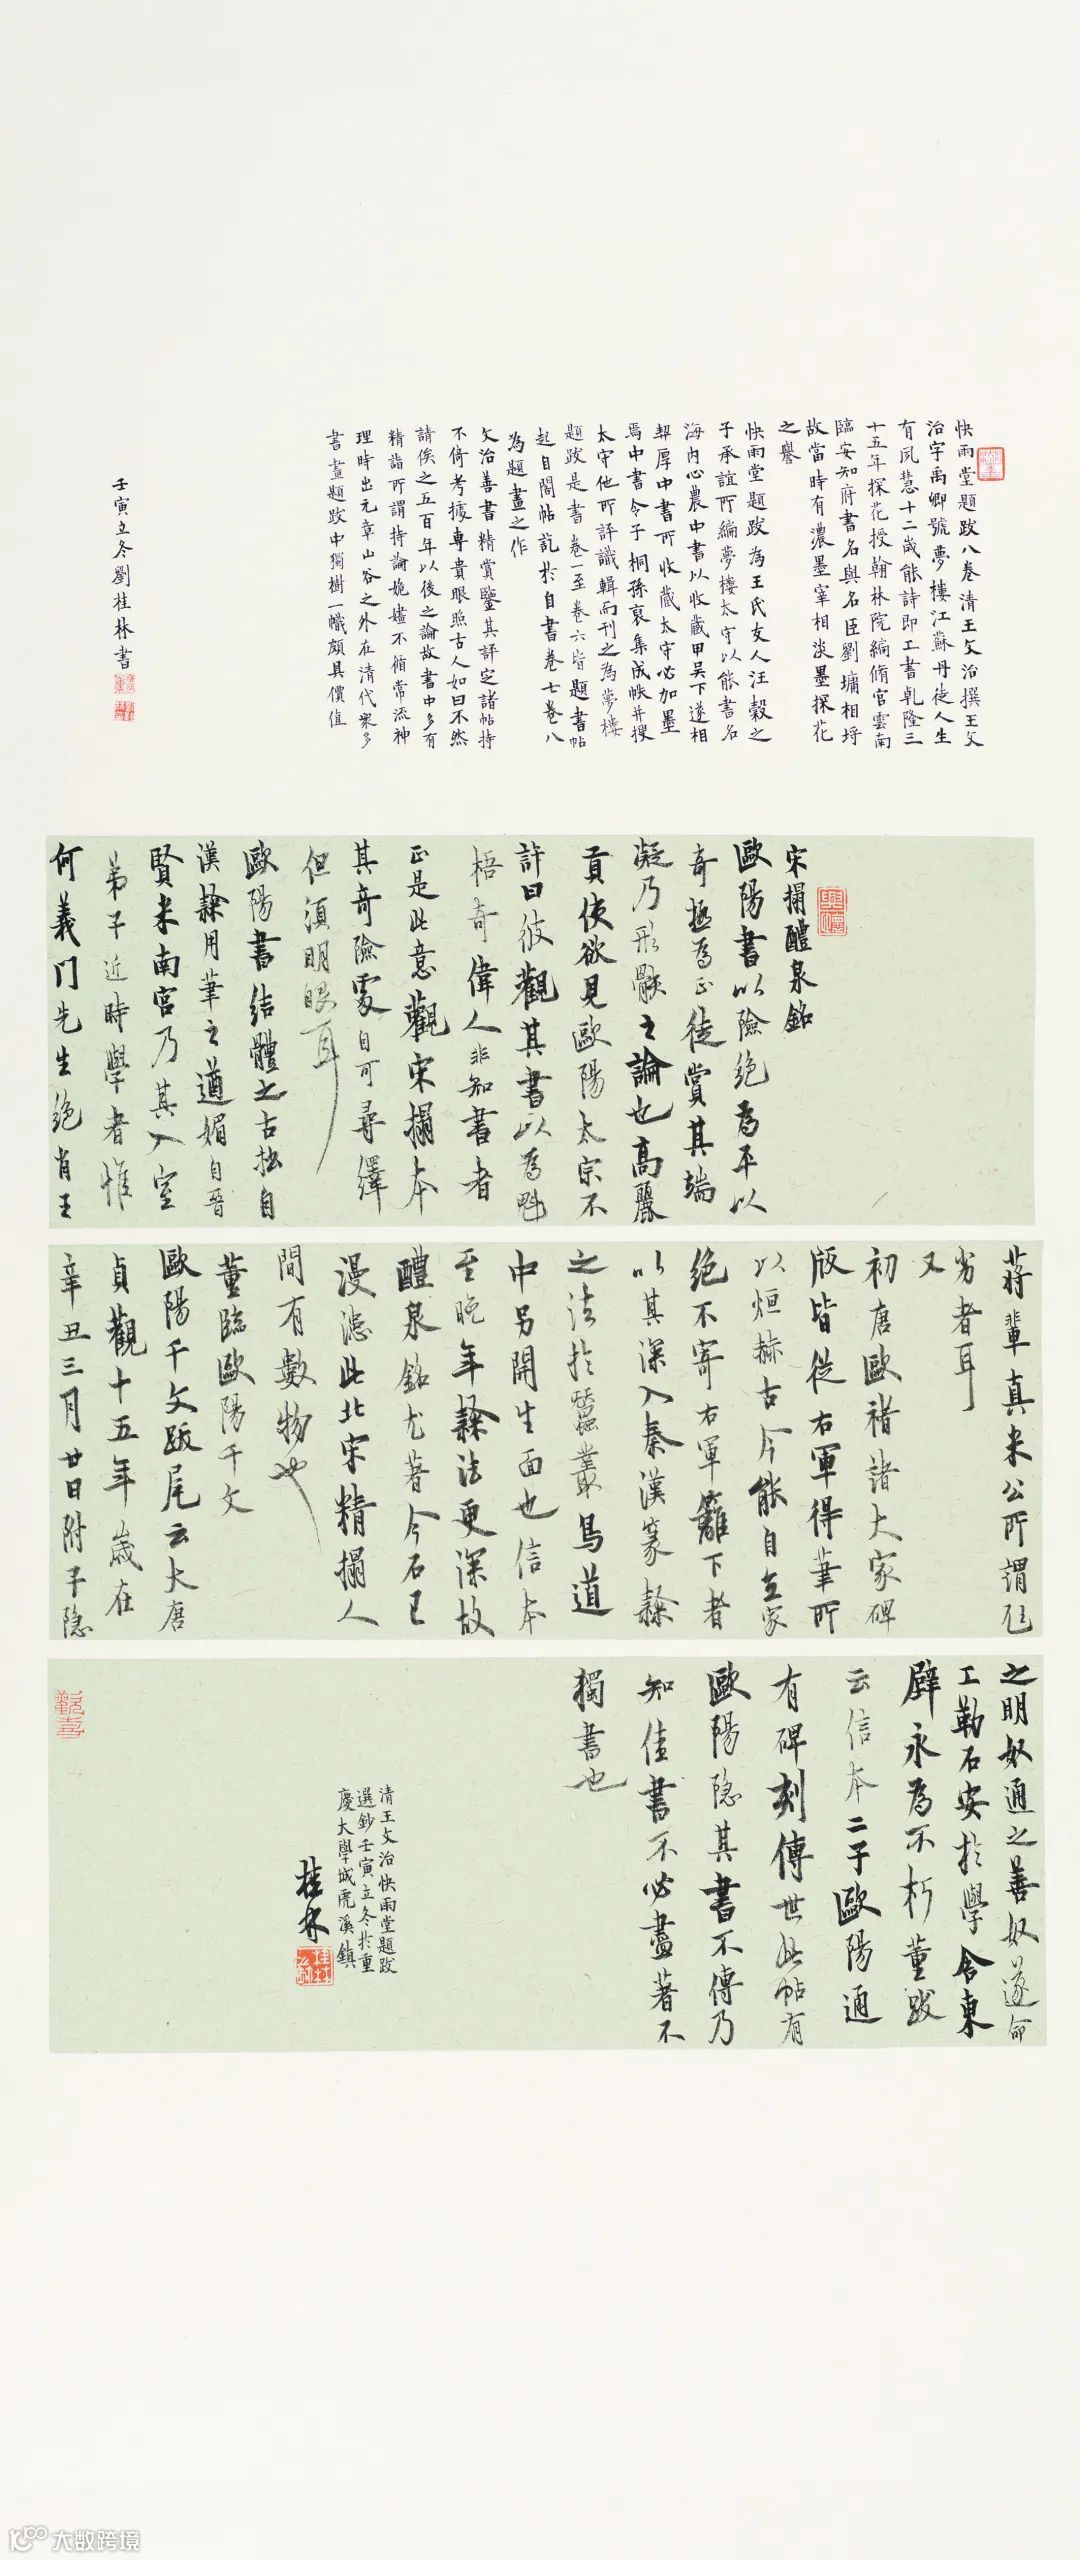 快雨堂題跋八卷清王文治撰王文
治字禹卿號夢樓江蘇丹徒人生
有夙慧十二歲能詩即工書乹隆三
十五年探花授翰林院編脩官雲南
臨安知府書名與名臣劉墉相埒
故當時有濃墨宰相淡墨探花
之譽
快雨堂題跋為王氏友人汪穀之
子承誼所編夢樓太守以能書名
海内心農中書以收藏甲吴下遂相
契厚中書所收藏太守必加墨
焉中書令子桐孫裒集成帙并搜
太守他所評識輯而刊之為夢樓
題跋是書卷一至卷六皆題書帖
起自閣帖訖扵自書卷七卷八
為題畫之作
文治善書精賞鑒其評定諸帖持
不倚考據專貴眼照古人如曰不然
請俟之五百年以後之論故書中多有
精詣所謂持論媕婳不循常流神
理時出元章山谷之外在清代衆多
書畫題跋中獨樹一幟頗具價值
壬寅立冬劉桂林書
宋搨醴泉銘
歐陽書以險絶為平以
奇極為正徒賞其端
凝乃形骸之論也高麗
貢使欲見歐陽太宗不
許曰彼觀其書以為魁
梧奇偉人非知書者
正是此意觀宋搨本
其奇險處自可尋繹
但須明眼耳
歐陽書結體之古拙自
漢隸用筆之遒媚自晉
賢米南宮乃其入室
弟子近時學者惟
何義门先生絶肖王
蔣輩真米公所謂
劣者耳
又
初唐歐褚諸大家碑
版皆從右軍得筆所
以烜赫古今能自立家
絶不寄右軍籬下者
以其深入秦漢篆隸
之法扵蠶叢鳥道
中另開生面也信本
至晚年隸法更深故
醴泉銘尤著今石已
漫漶此北宋精搨人
間有數物也
董臨歐陽千文
歐陽千文跋尾云大唐
貞觀十五年歲在
辛丑三月廿日附子隐
之明奴通之善奴遂命
工勒石安扵學舍東
壁永為不朽董跋
云信本二子歐陽通
有碑刻傳世此帖有
歐陽隐其書不傳乃
知佳書不必盡著不
獨書也
清王文治快雨堂題跋
選鈔壬寅立冬扵重
慶大學城虎溪鎮
桂林
大数跨境